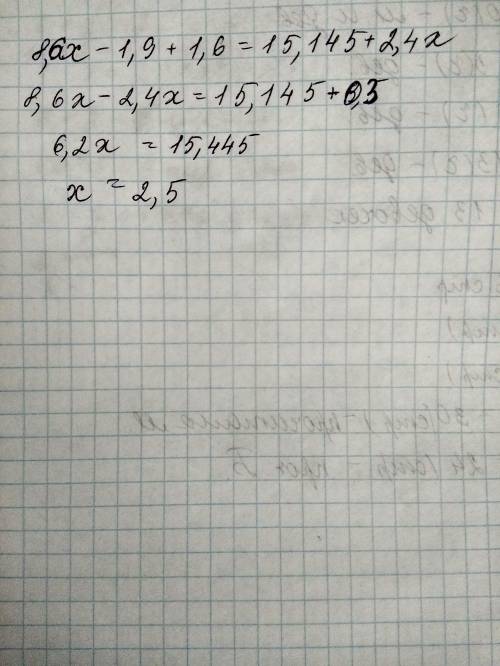 8,6x - 1,9 + 1,6 = 15,145 + 2,4x
8,6x - 2,4x = 15,145 + 0,3
6,2x = 15,445
x = 2,5